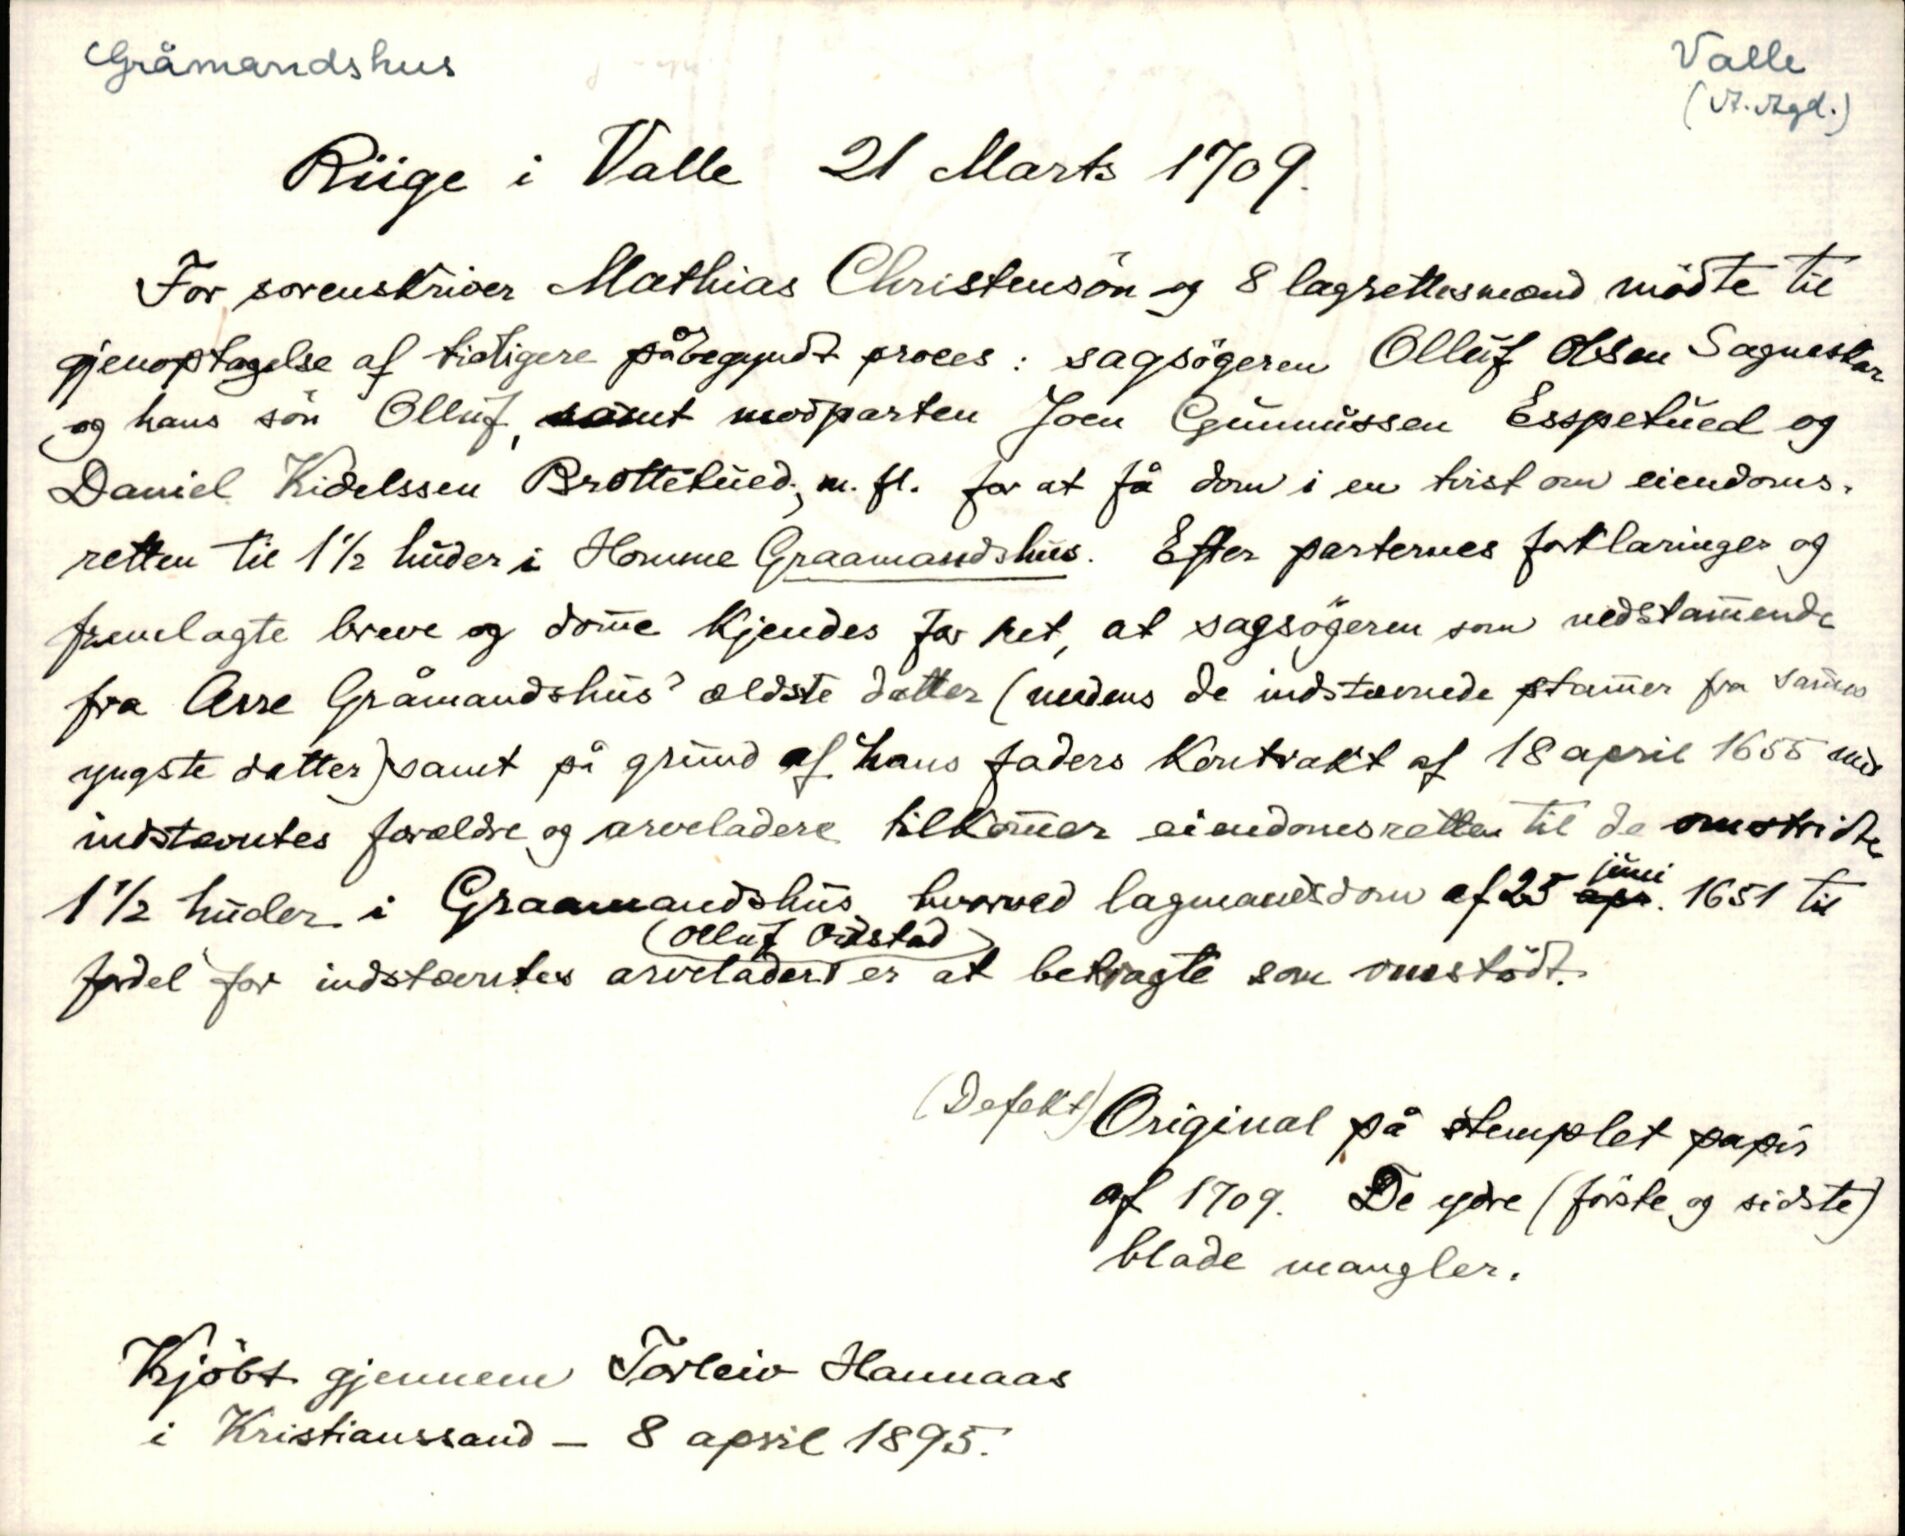 Gråmandshus
Valle
(A. Agd.)
Riige i Valle 21 Marts 1709.
For sorenskriver Mathias Christensön og 8 lagrettesmænd mödte til
gjenoptagelse af tidligere påbegyndt proces : sagsögeren Olluf Olsen Sagneskar
og hans sön Olluf, samt modparten Joen Gunnussen Esspetued og
Daniel Kidelssen Brottetued, m. fl. for at få dom i en tvist om eiendoms-
retten til 1 1/2 huder i Homme Graamandshus. Efter parternes forklaringer og
fremlagte breve og dom̅e kjendes for ret, at sagsögeren som nedstam̅ende
fra Asse Gråmandshus' ældste datter (medens de indstævnede stam̅er fra sam̅es
yngste datter) samt på grund af hans faders kontrakt af 18 april 1655 med
indstævntes forældre og arveladere tilkom̅er eiendomsretten til de omstridte
1 1/2 huder i Graamandshus hvorved lagmandsdom af 25 apr. juni 1651 til
(Olluf Odstad)
fordel for indstævntes arveladers er at betragte som omstödt.
(Defekt) Original på stemplet papir
af 1709. De ydre (förste og sidste)
blade mangler.
Kjöbt gjennem Torleiv Hannaas
i Kristianssand – 8 april 1895.